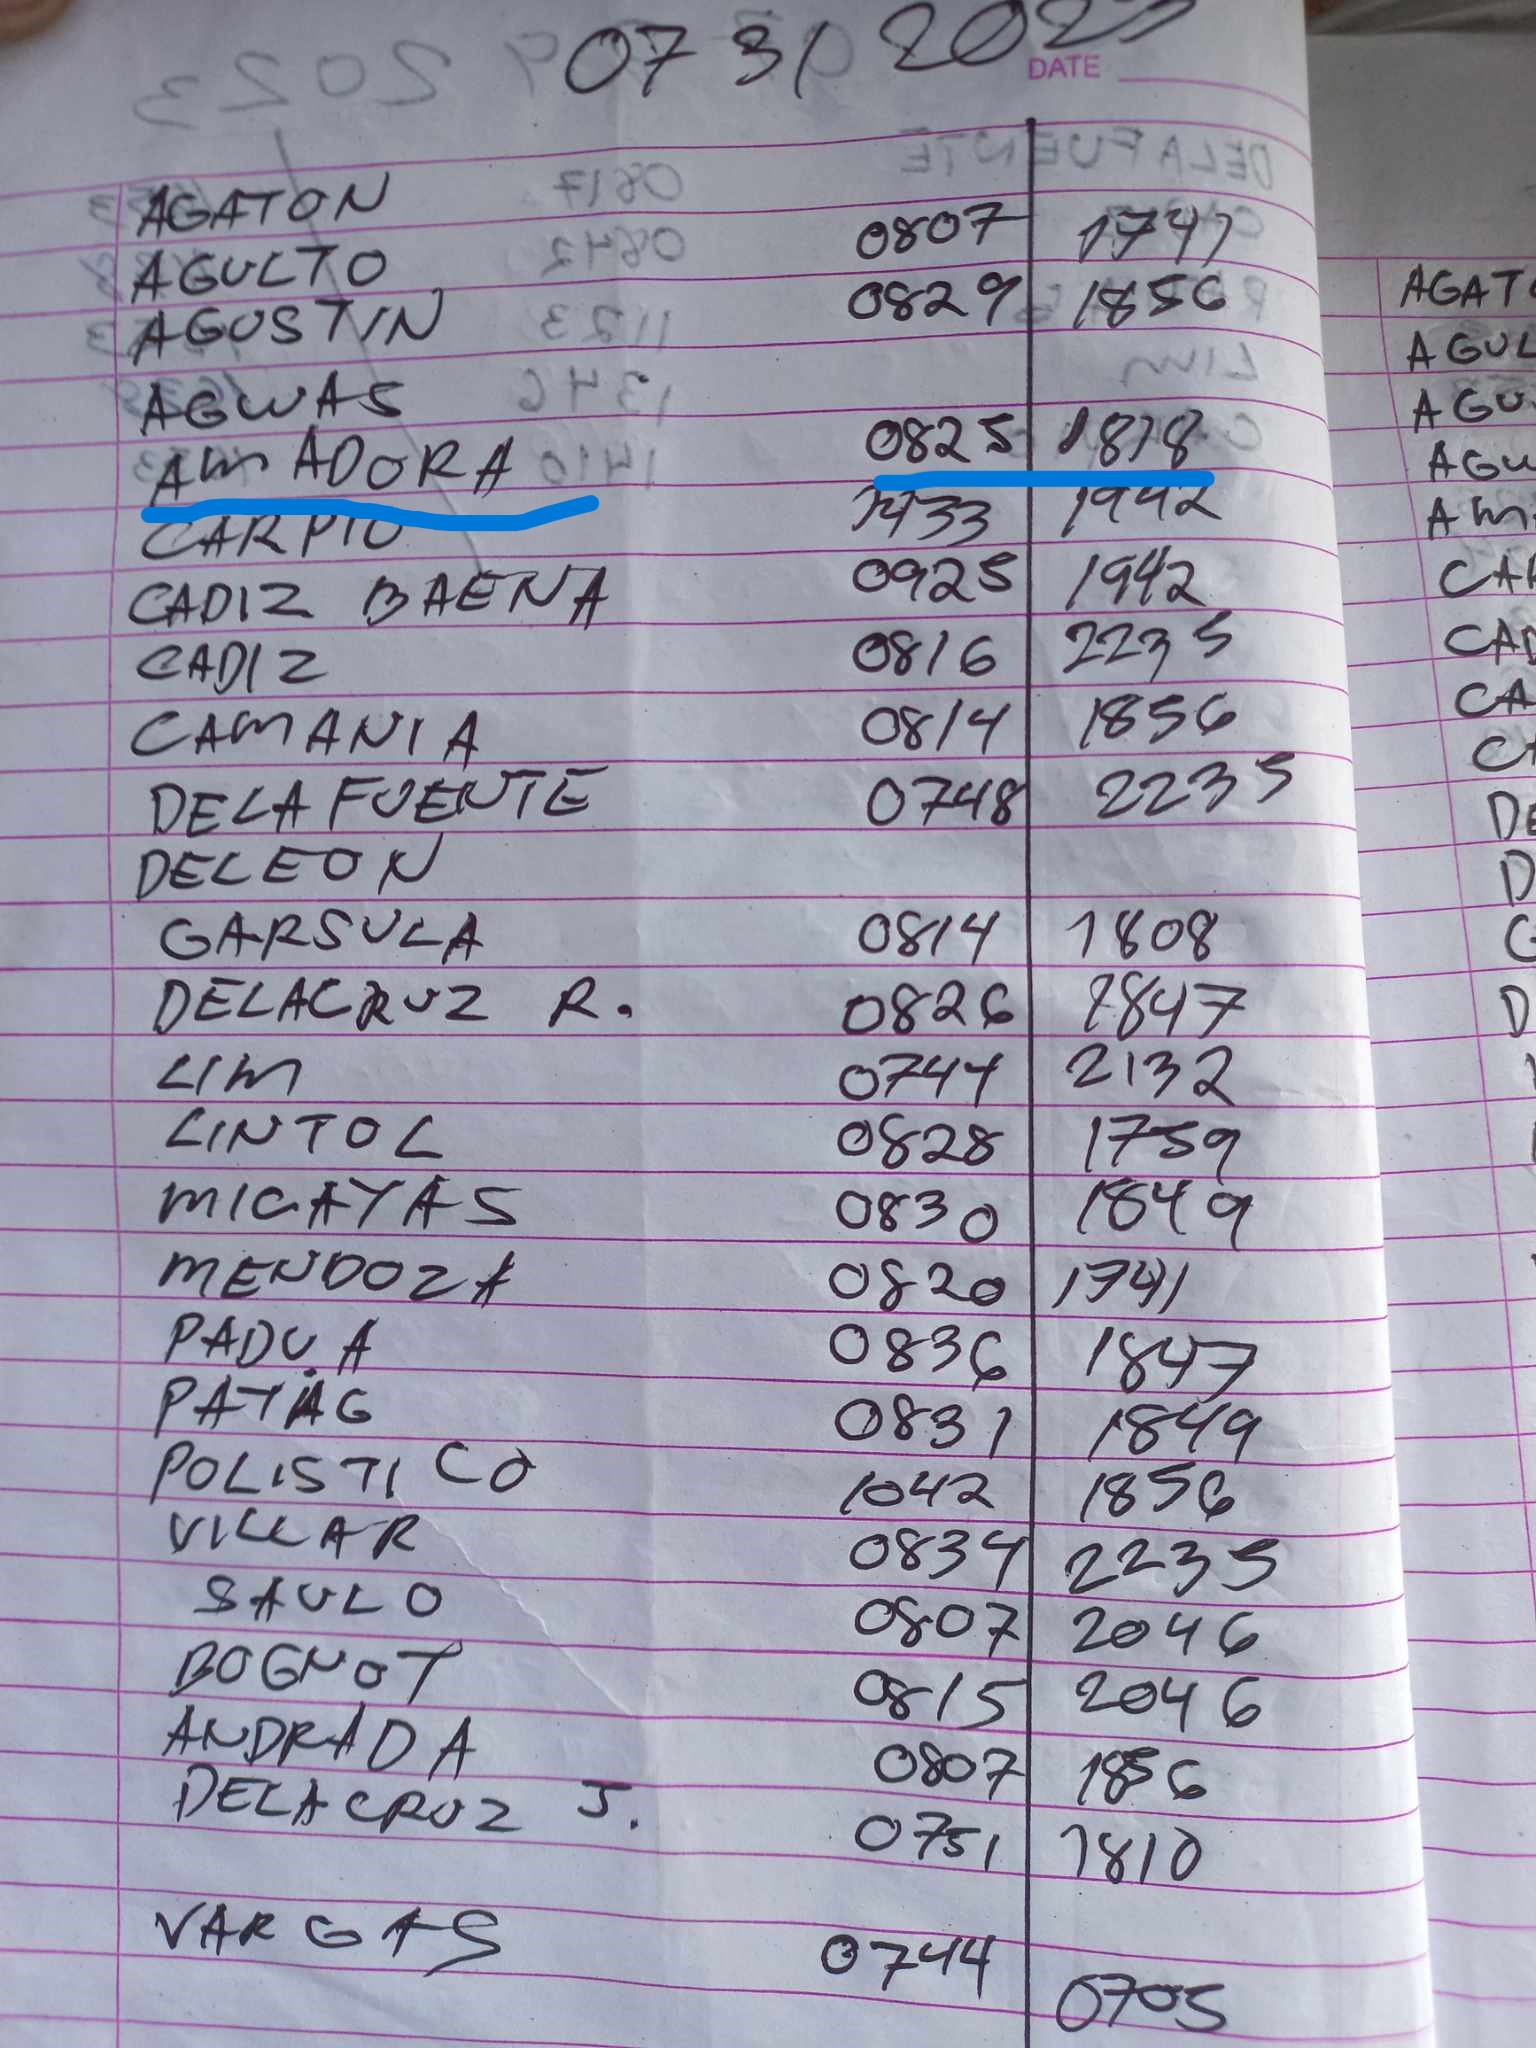 07 31 2023
DATE
AGATON
AGULTO 0807 1741
AGUSTIN 0829 1856
AGWAS
AMADORA 0825 1818
CARPIO 1433 1942
CADIZ BAENA 0925 1942
CADIZ 0816 2235
CAMANIA 0814 1856
DELA FUENTE 0748 2235
DELEON
GARSULA 0814 1808
DELACRUZ R. 0826 1847
LIM 0744 2132
LINTOL 0828 1759
MIGAYAS 0830 1849
MENDOZA 0820 1741
PADUA 0836 1847
PATAG 0831 1849
POLISTICO 1042 1856
VILLAR 0834 2235
SAULO 0807 2046
BOGNOT 0815 2046
ANDRADA 0807 1856
DELACRUZ J. 0751 1810
VARGAS 0744 0705
AGAT
AGUL
AGU
AGW
AM
CA
CAD
CA
CA
DE
D
G
D